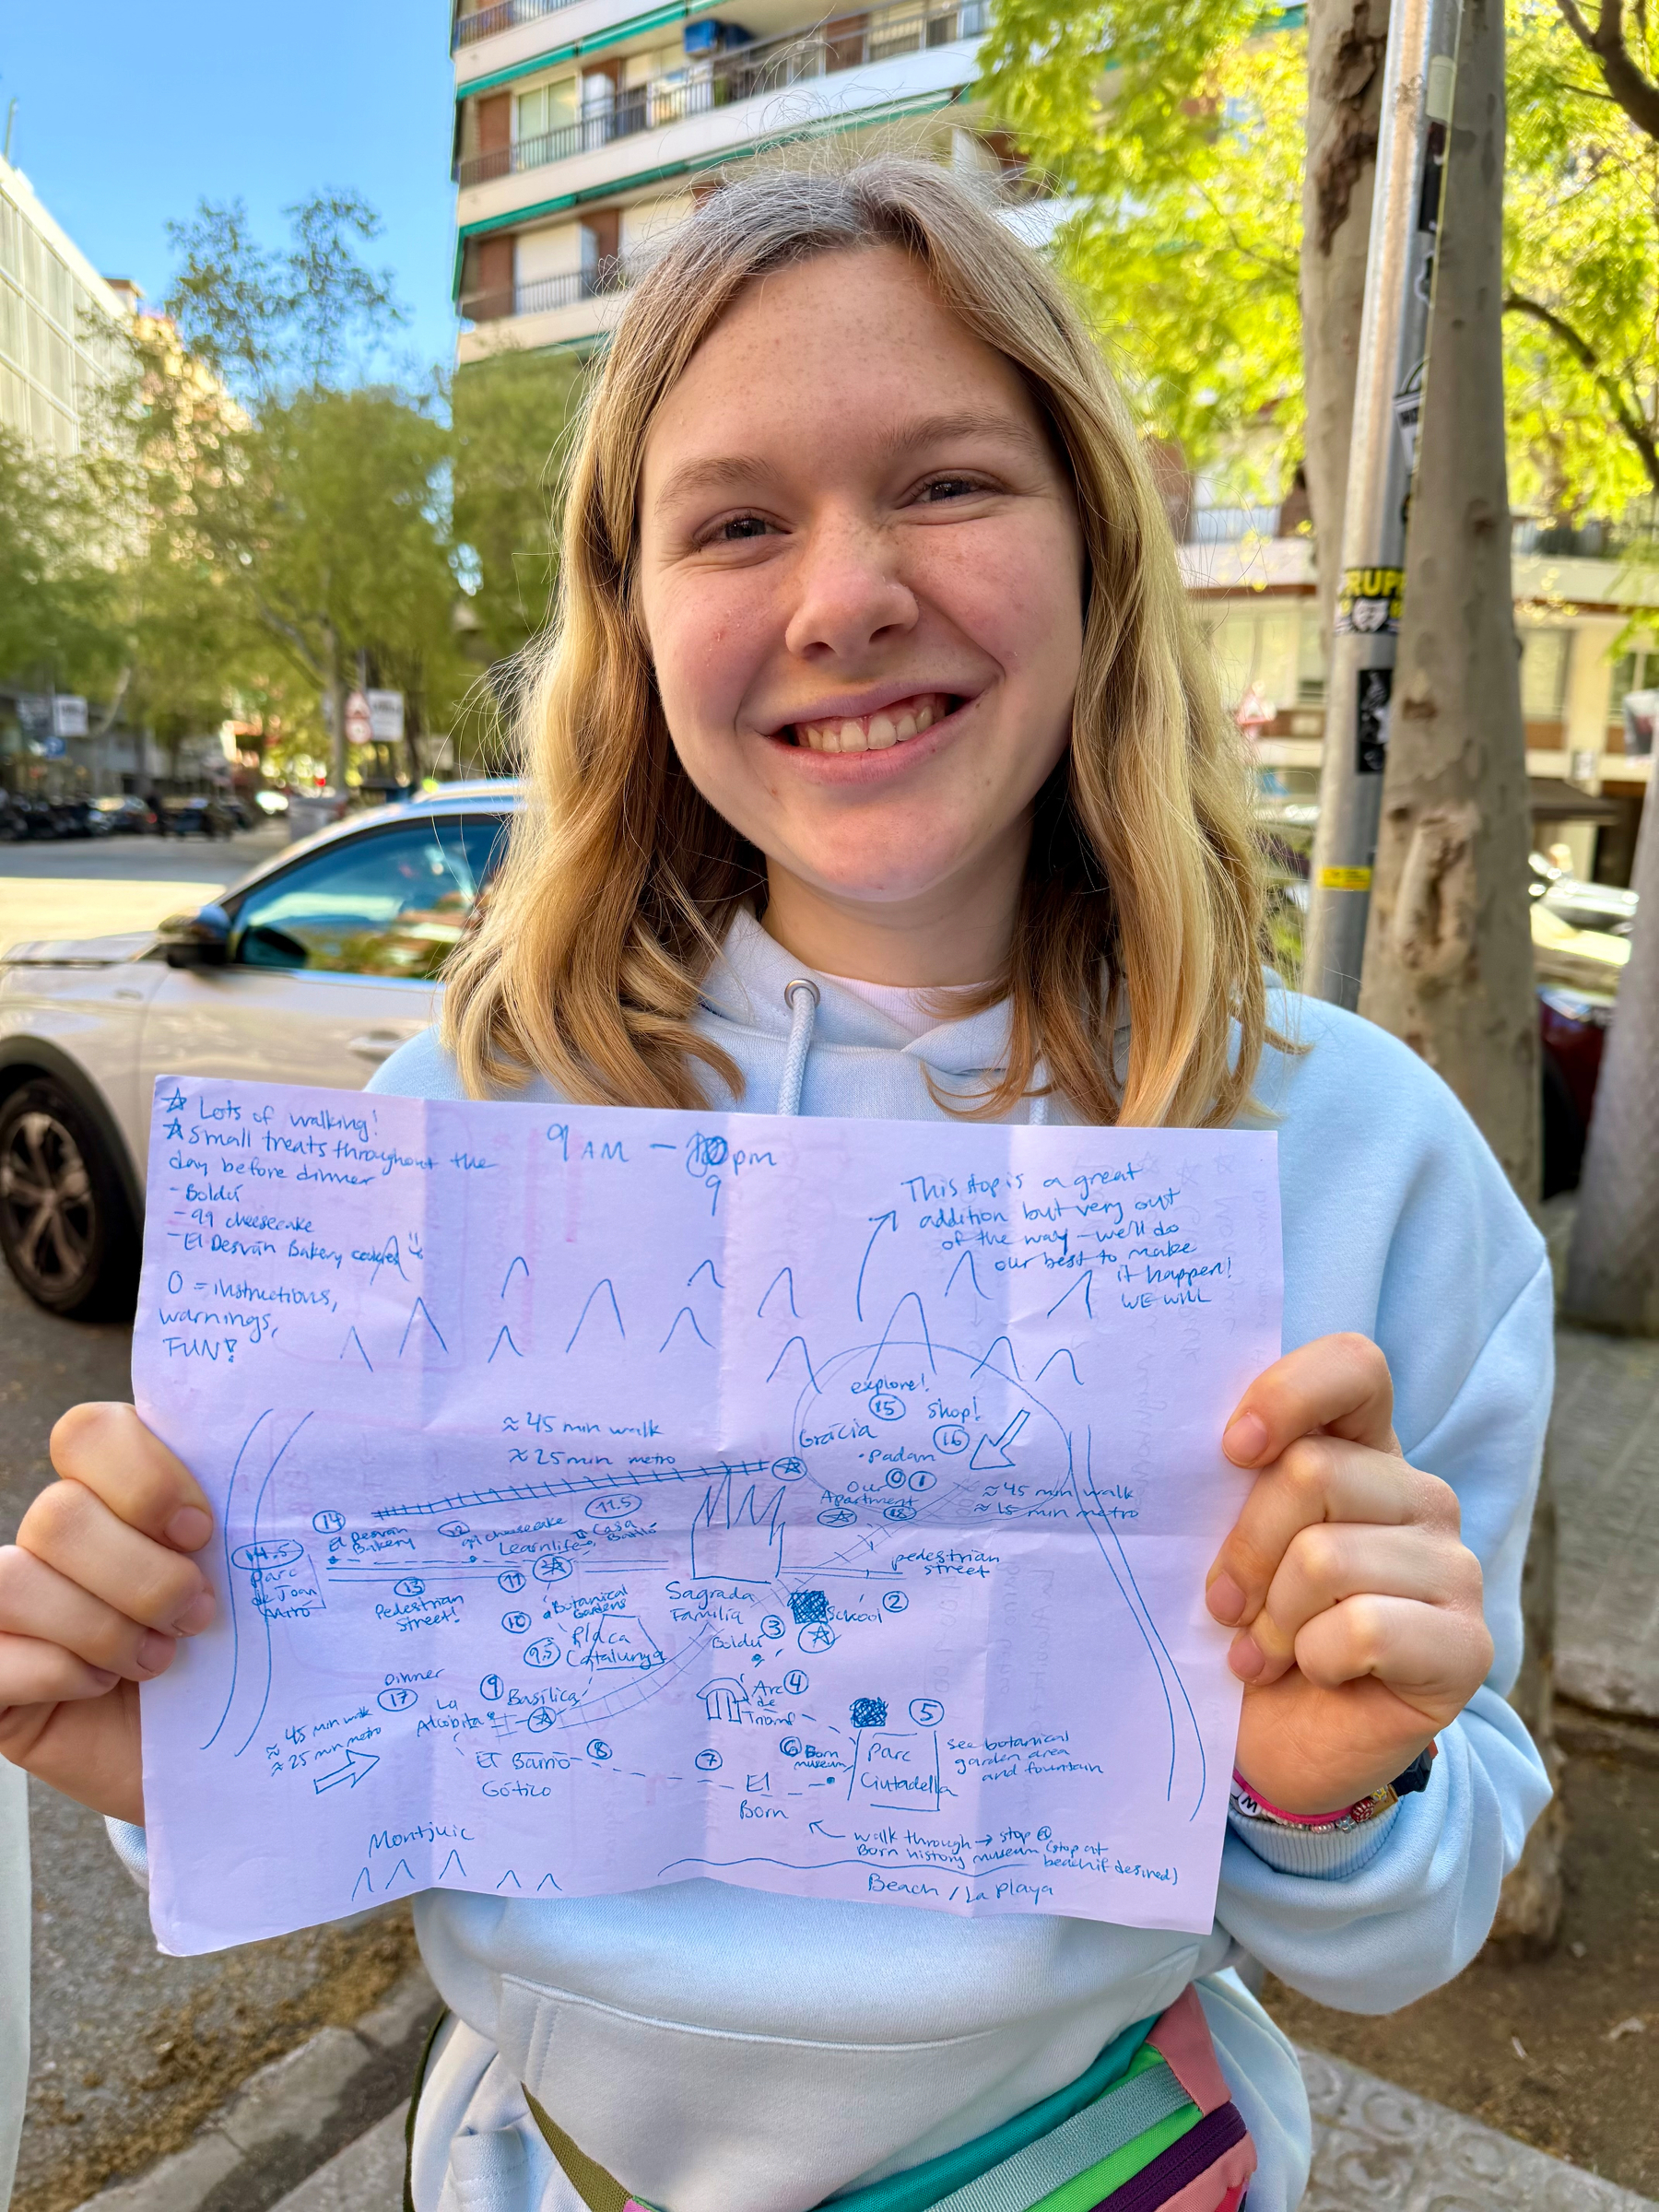 ☆ Lots of walking!
☆ Small treats throughout the
day before dinner
- Boldú
- 99 cheesecake
- El Desván Bakery
0 = instructions,
warnings,
FUN!
9 AM - pm
9
This stop is a great
addition but very out
of the way - we'll do
our best to make
it happen!
WE WILL
explore!
15 shop!
Grácia 16
· Padam
Our 0 1
Apartment
18
≈ 45 min walk
≈ 15 min metro
≈ 45 min walk
≈ 25 min metro
14
El Desván
Bakery
12
99 cheesecake
11.5
Casa
Learnlife
11
14.5
Parc
de Joan
Miró
13
Pedestrian
Street!
10
Botanical
Gardens
Plaça
9.5 Catalunya
Sagrada
Família
pedestrian
street
School 2
Boldú 3
Arc 4
de
Triomf
5
Parc
Ciutadella
see botanical
garden area
and fountain
6 Born
museum
7
El
Born
8
El Barrio
Gótico
9 Basílica
Dinner
17
La
Alcobita
≈ 45 min walk
≈ 25 min metro
Montjuic
walk through → stop @
Born history museum (stop at
beach if desired)
Beach / La Playa
RUP
W